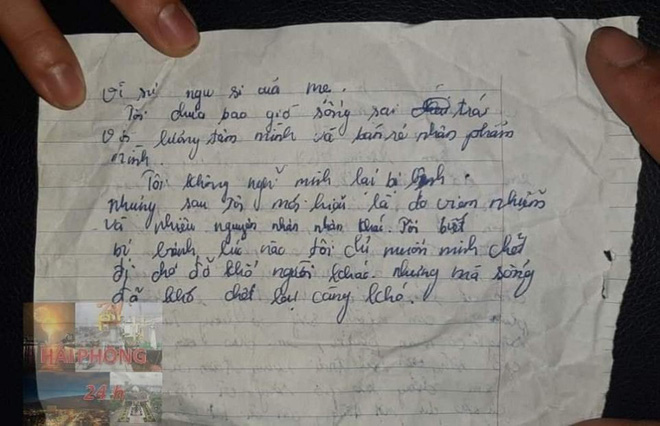 vì sự ngu si của mẹ.
Tôi chưa bao giờ sống sai trái
với lương tâm mình và bán rẻ nhân phẩm
mình.
Tôi không nghĩ mình lại bị bệnh.
nhưng sau tôi mới luận là do viêm nhiễm
vì nhiều nguyên nhân nhân khác. Tôi biết
bị bệnh lúc nào tôi chỉ muốn mình chết
đi cho đỡ khổ người khác. nhưng mà sống
đã khó chết lại càng khó.
24
HẢI PHÒNG
24h